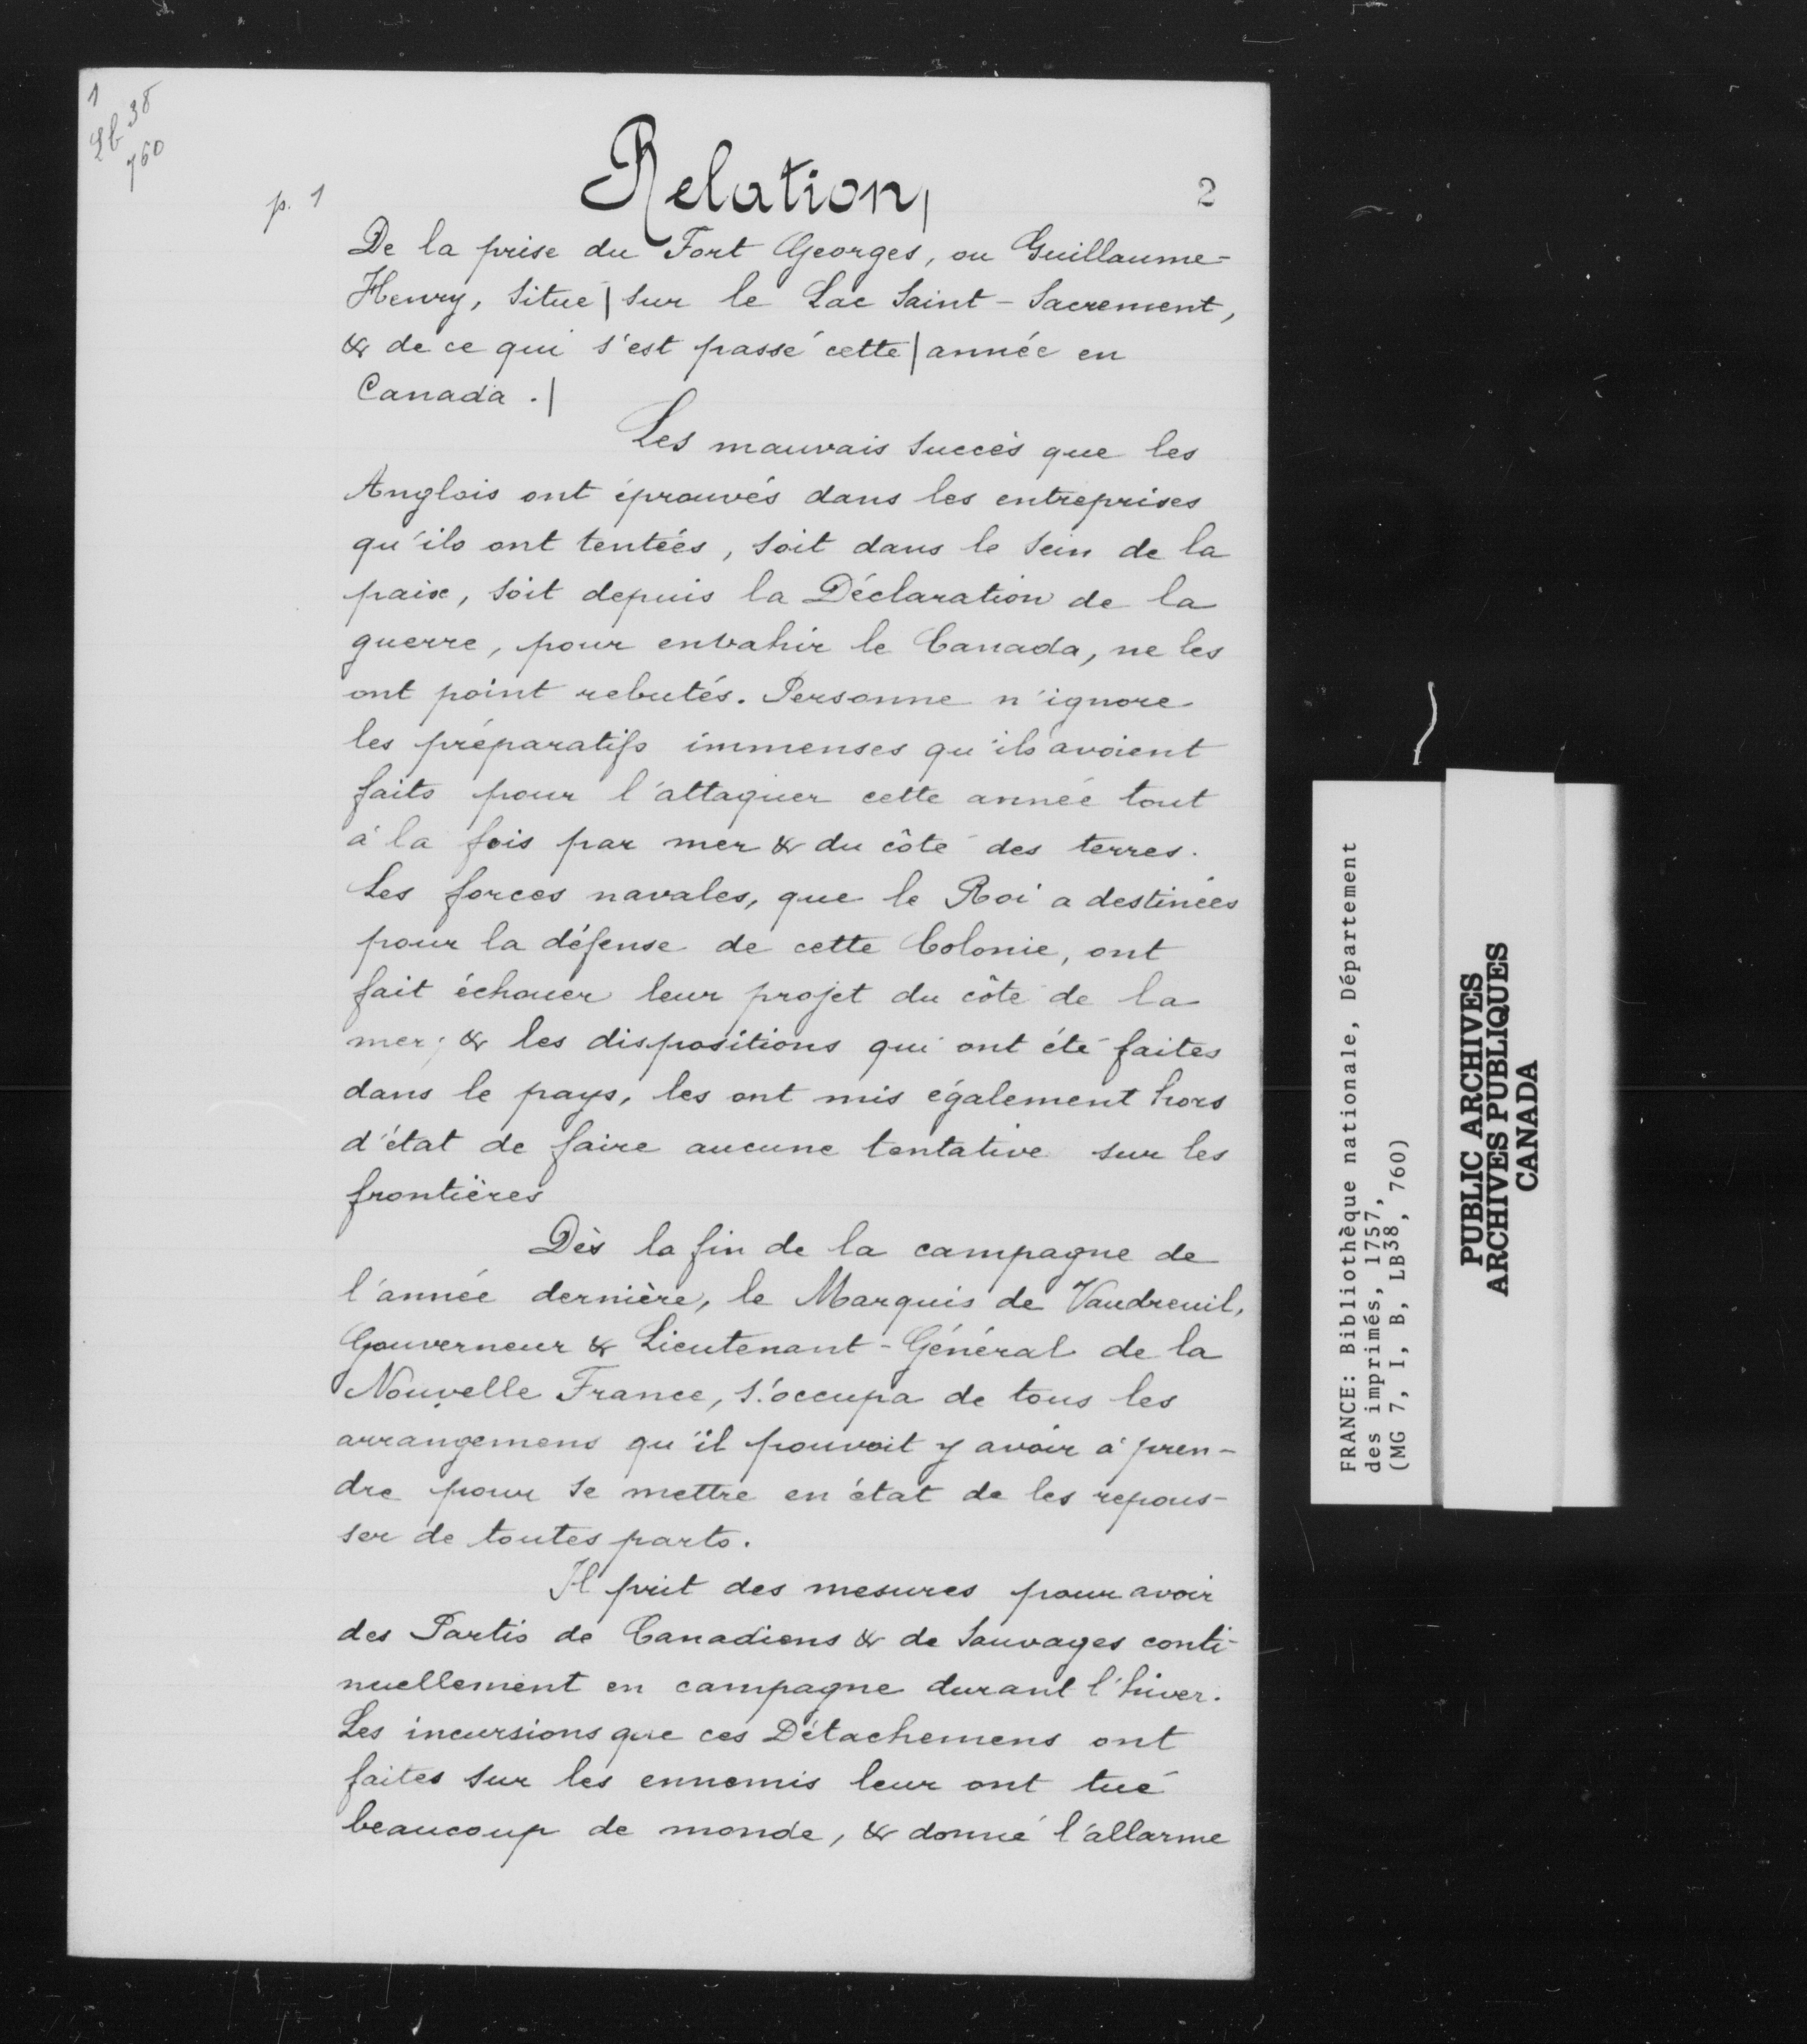 1
Lb 38
760
p. 1
Relation,
2
De la prise du Fort Georges, ou Guillaume-
Henry, situé | sur le Lac Saint-Sacrement,
& de ce qui s'est passé cette | année en
Canada. |
Les mauvais succès que les
Anglois ont éprouvés dans les entreprises
qu'ils ont tentées, soit dans le sein de la
paix, soit depuis la Déclaration de la
guerre, pour envahir le Canada, ne les
ont point rebutés. Personne n'ignore
les préparatifs immenses qu'ils avoient
faits pour l'attaquer cette année tout
à la fois par mer & du côté des terres.
Les forces navales, que le Roi a destinées
pour la défense de cette Colonie, ont
fait échouer leur projet du côté de la
mer; & les dispositions qui ont été faites
dans le pays, les ont mis également hors
d'état de faire aucune tentative sur les
frontières
Dès la fin de la campagne de
l'année dernière, le Marquis de Vaudreuil,
Gouverneur & Lieutenant-Général de la
Nouvelle France, s'occupa de tous les
arrangemens qu'il pouvoit y avoir à pren-
dre pour se mettre en état de les repous-
ser de toutes parts.
Il prit des mesures pour avoir
des Partis de Canadiens & de Sauvages conti-
nuellement en campagne durant l'hiver.
Les incursions que ces Détachemens ont
faites sur les ennemis leur ont tué
beaucoup de monde, & donné l'allarme
FRANCE: Bibliothèque nationale, Département
des imprimés, 1757,
(MG 7, I, B, LB38, 760)
PUBLIC ARCHIVES
ARCHIVES PUBLIQUES
CANADA